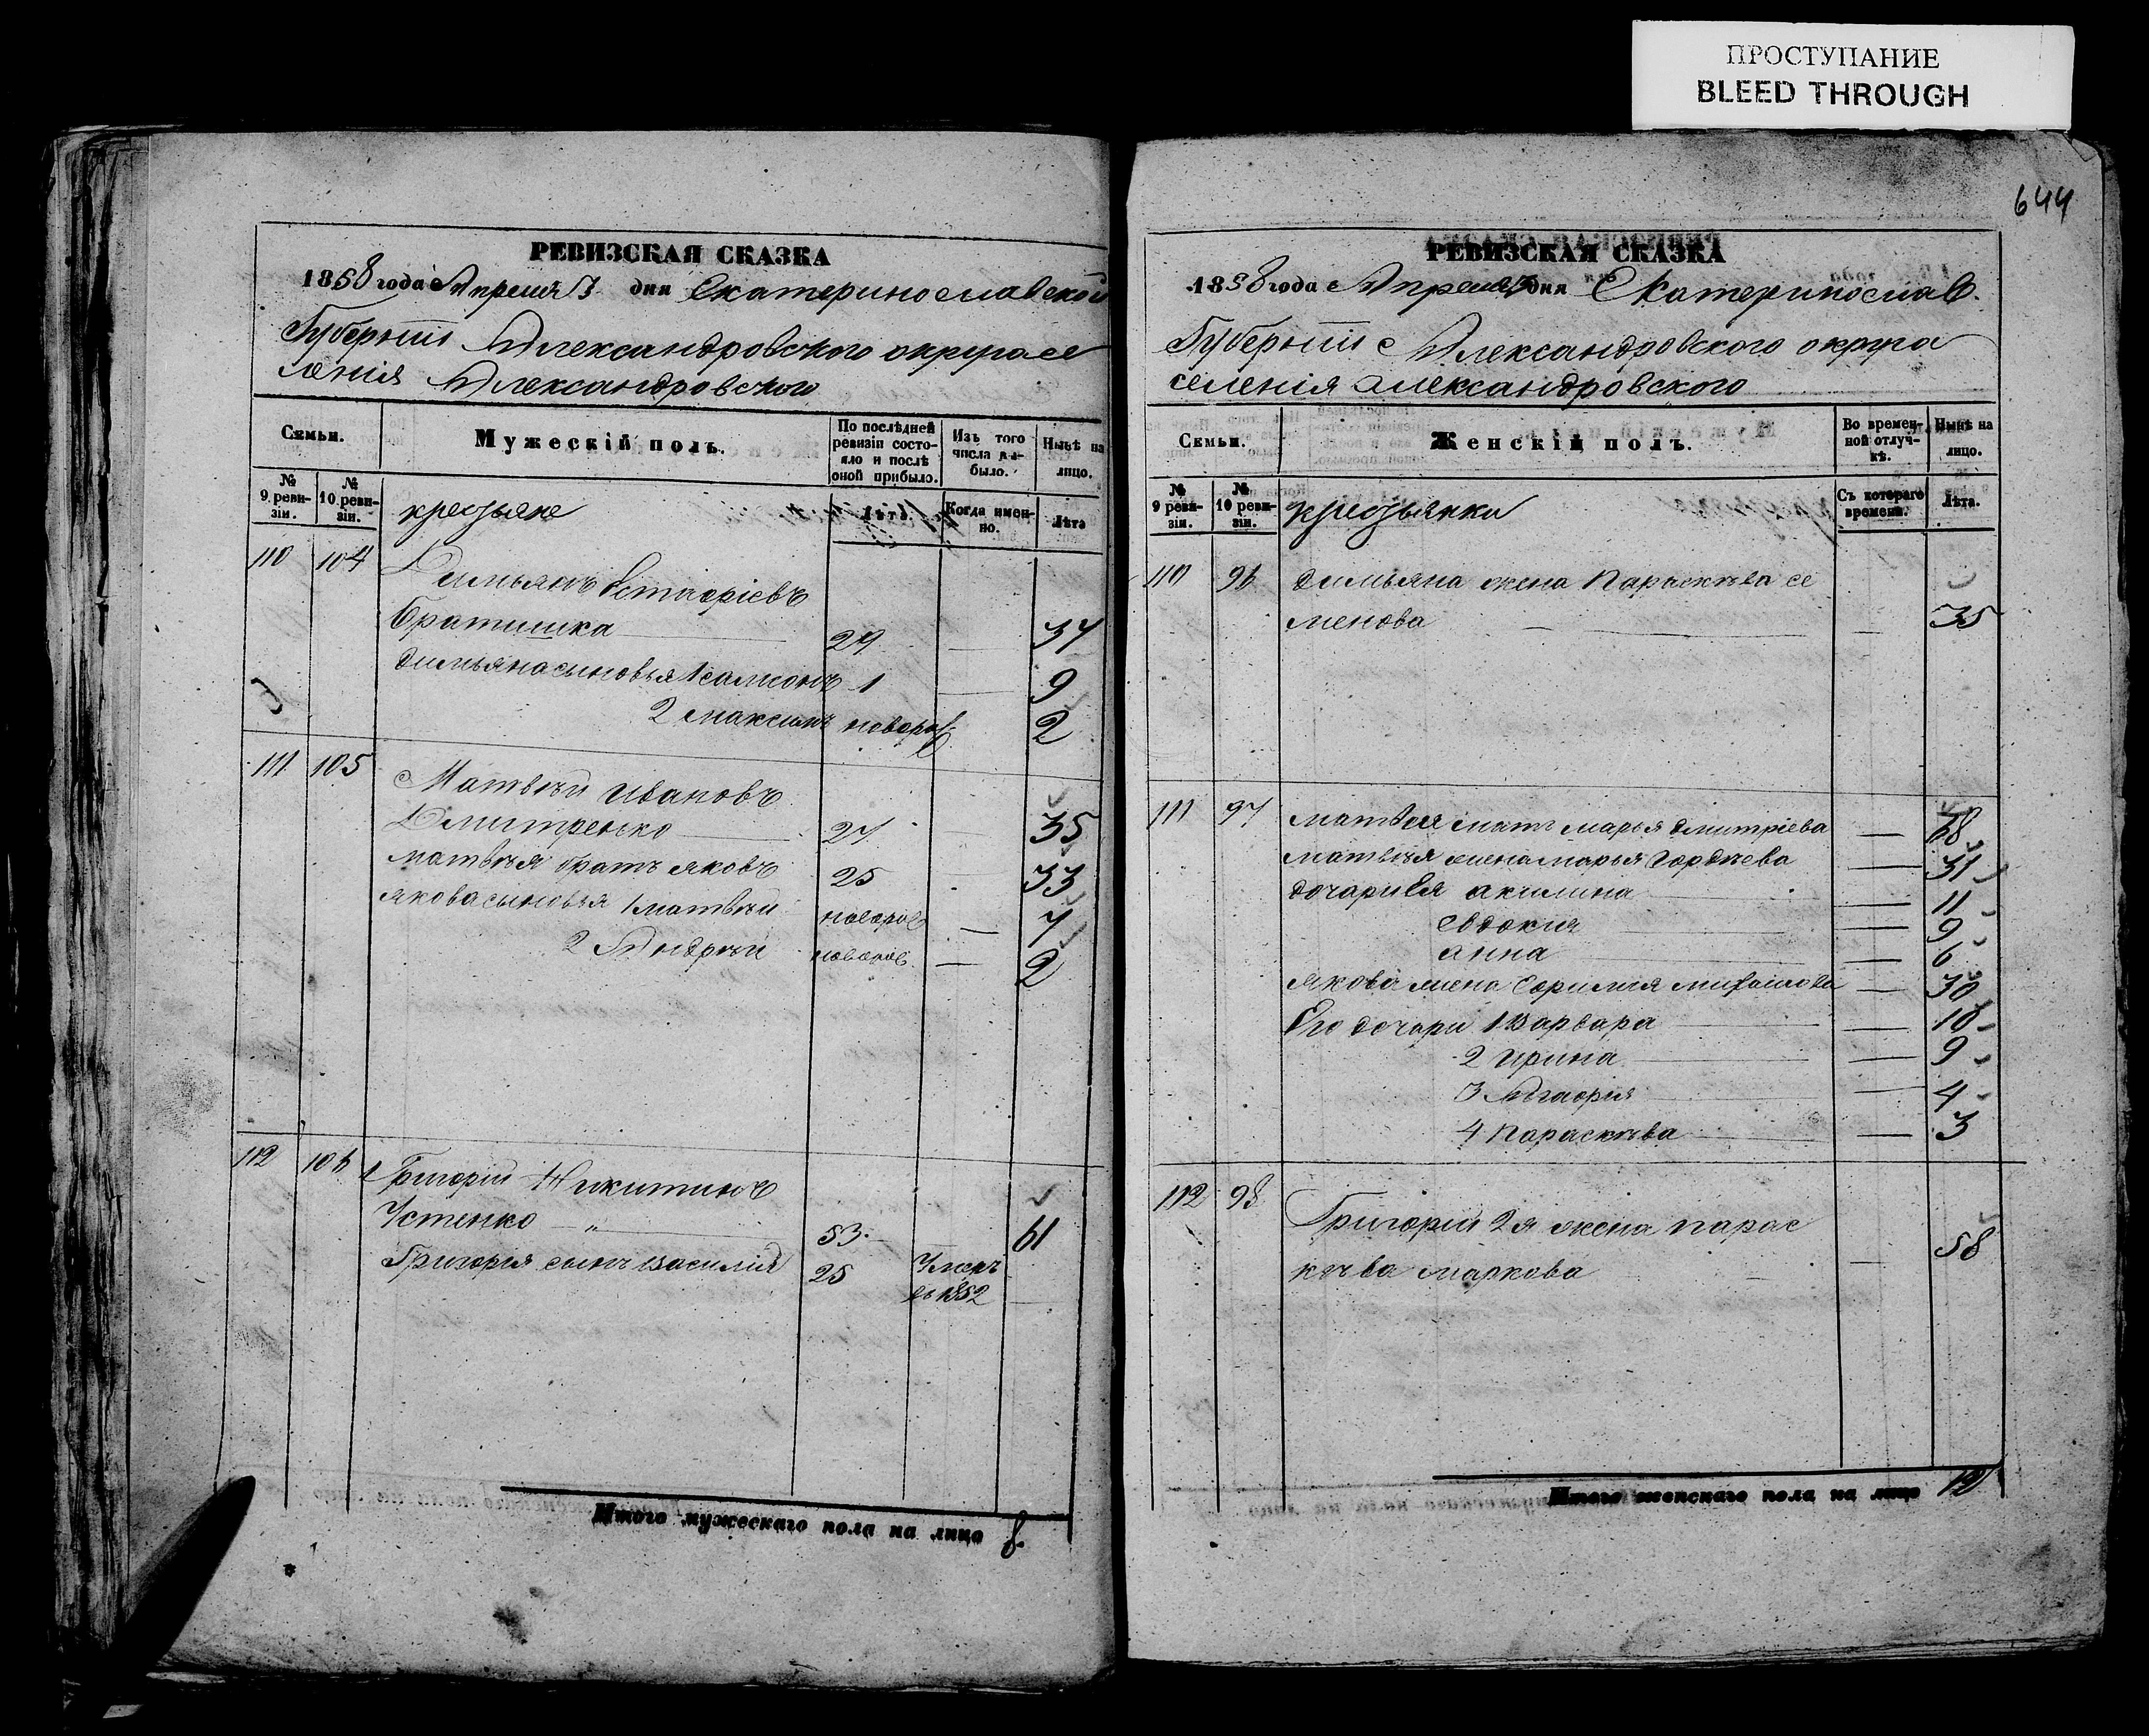 ПРОСТУПАНИЕ
BLEED THROUGH
644
РЕВИЗСКАЯ СКАЗКА
1858 года Апреля 3 дня Екатеринославской
Губерніи Александровского округа се
ленія Александровского
Семьи.
Мужескій полъ.
По послѣдней ревизіи состояло и послѣ оной прибыло.
Изъ того числа выбыло.
Нынѣ на лицо.
№ 9 ревизіи.
№ 10 ревизіи.
крестьяне
Лѣта.
Когда именно.
Лѣта
110 104 Димьянъ
Братишка 29 — 37
Димьяна сыновья 1 самсонъ 1 — 9
2 максимъ новорож 2
111 105 Матвѣй Ивановъ
Дмитренко 27 35
матвѣя братъ яковъ 25 33
якова сыновья 1 матвѣй новорож — 7
2 Андрѣй новорож — 2
112 106 Григорій Никитинъ
Устенко 53 61
Григорія сынъ василій 25 Умеръ
въ 1852 —
Итого мужескаго пола на лицо 8.
РЕВИЗСКАЯ СКАЗКА
1858 года Апреля 3 дня Екатеринослав.
Губерніи Александровского округа
селенія александровского
Семьи.
Женскій полъ.
Во временной отлучкѣ.
Нынѣ на лицо.
№ 9 ревизіи.
№ 10 ревизіи.
крестьянки
Съ котораго времени.
Лѣта.
110 96 димьяна жена Параскѣва се
менова — 35
111 97 матвѣя мать марья дмитріева — 58
матвѣя жена марья Гордѣева — 31
дочари Ея акилина — 11
Евдокия — 9
анна — 6
якова жена — 30
Его дочари 1 Варвара — 10
2 Ирина — 9
3 — 4
4 Параскѣва — 3
112 98 Григорія 2я жена парас
кѣва маркова — 58
Итого женскаго пола на лицо 12